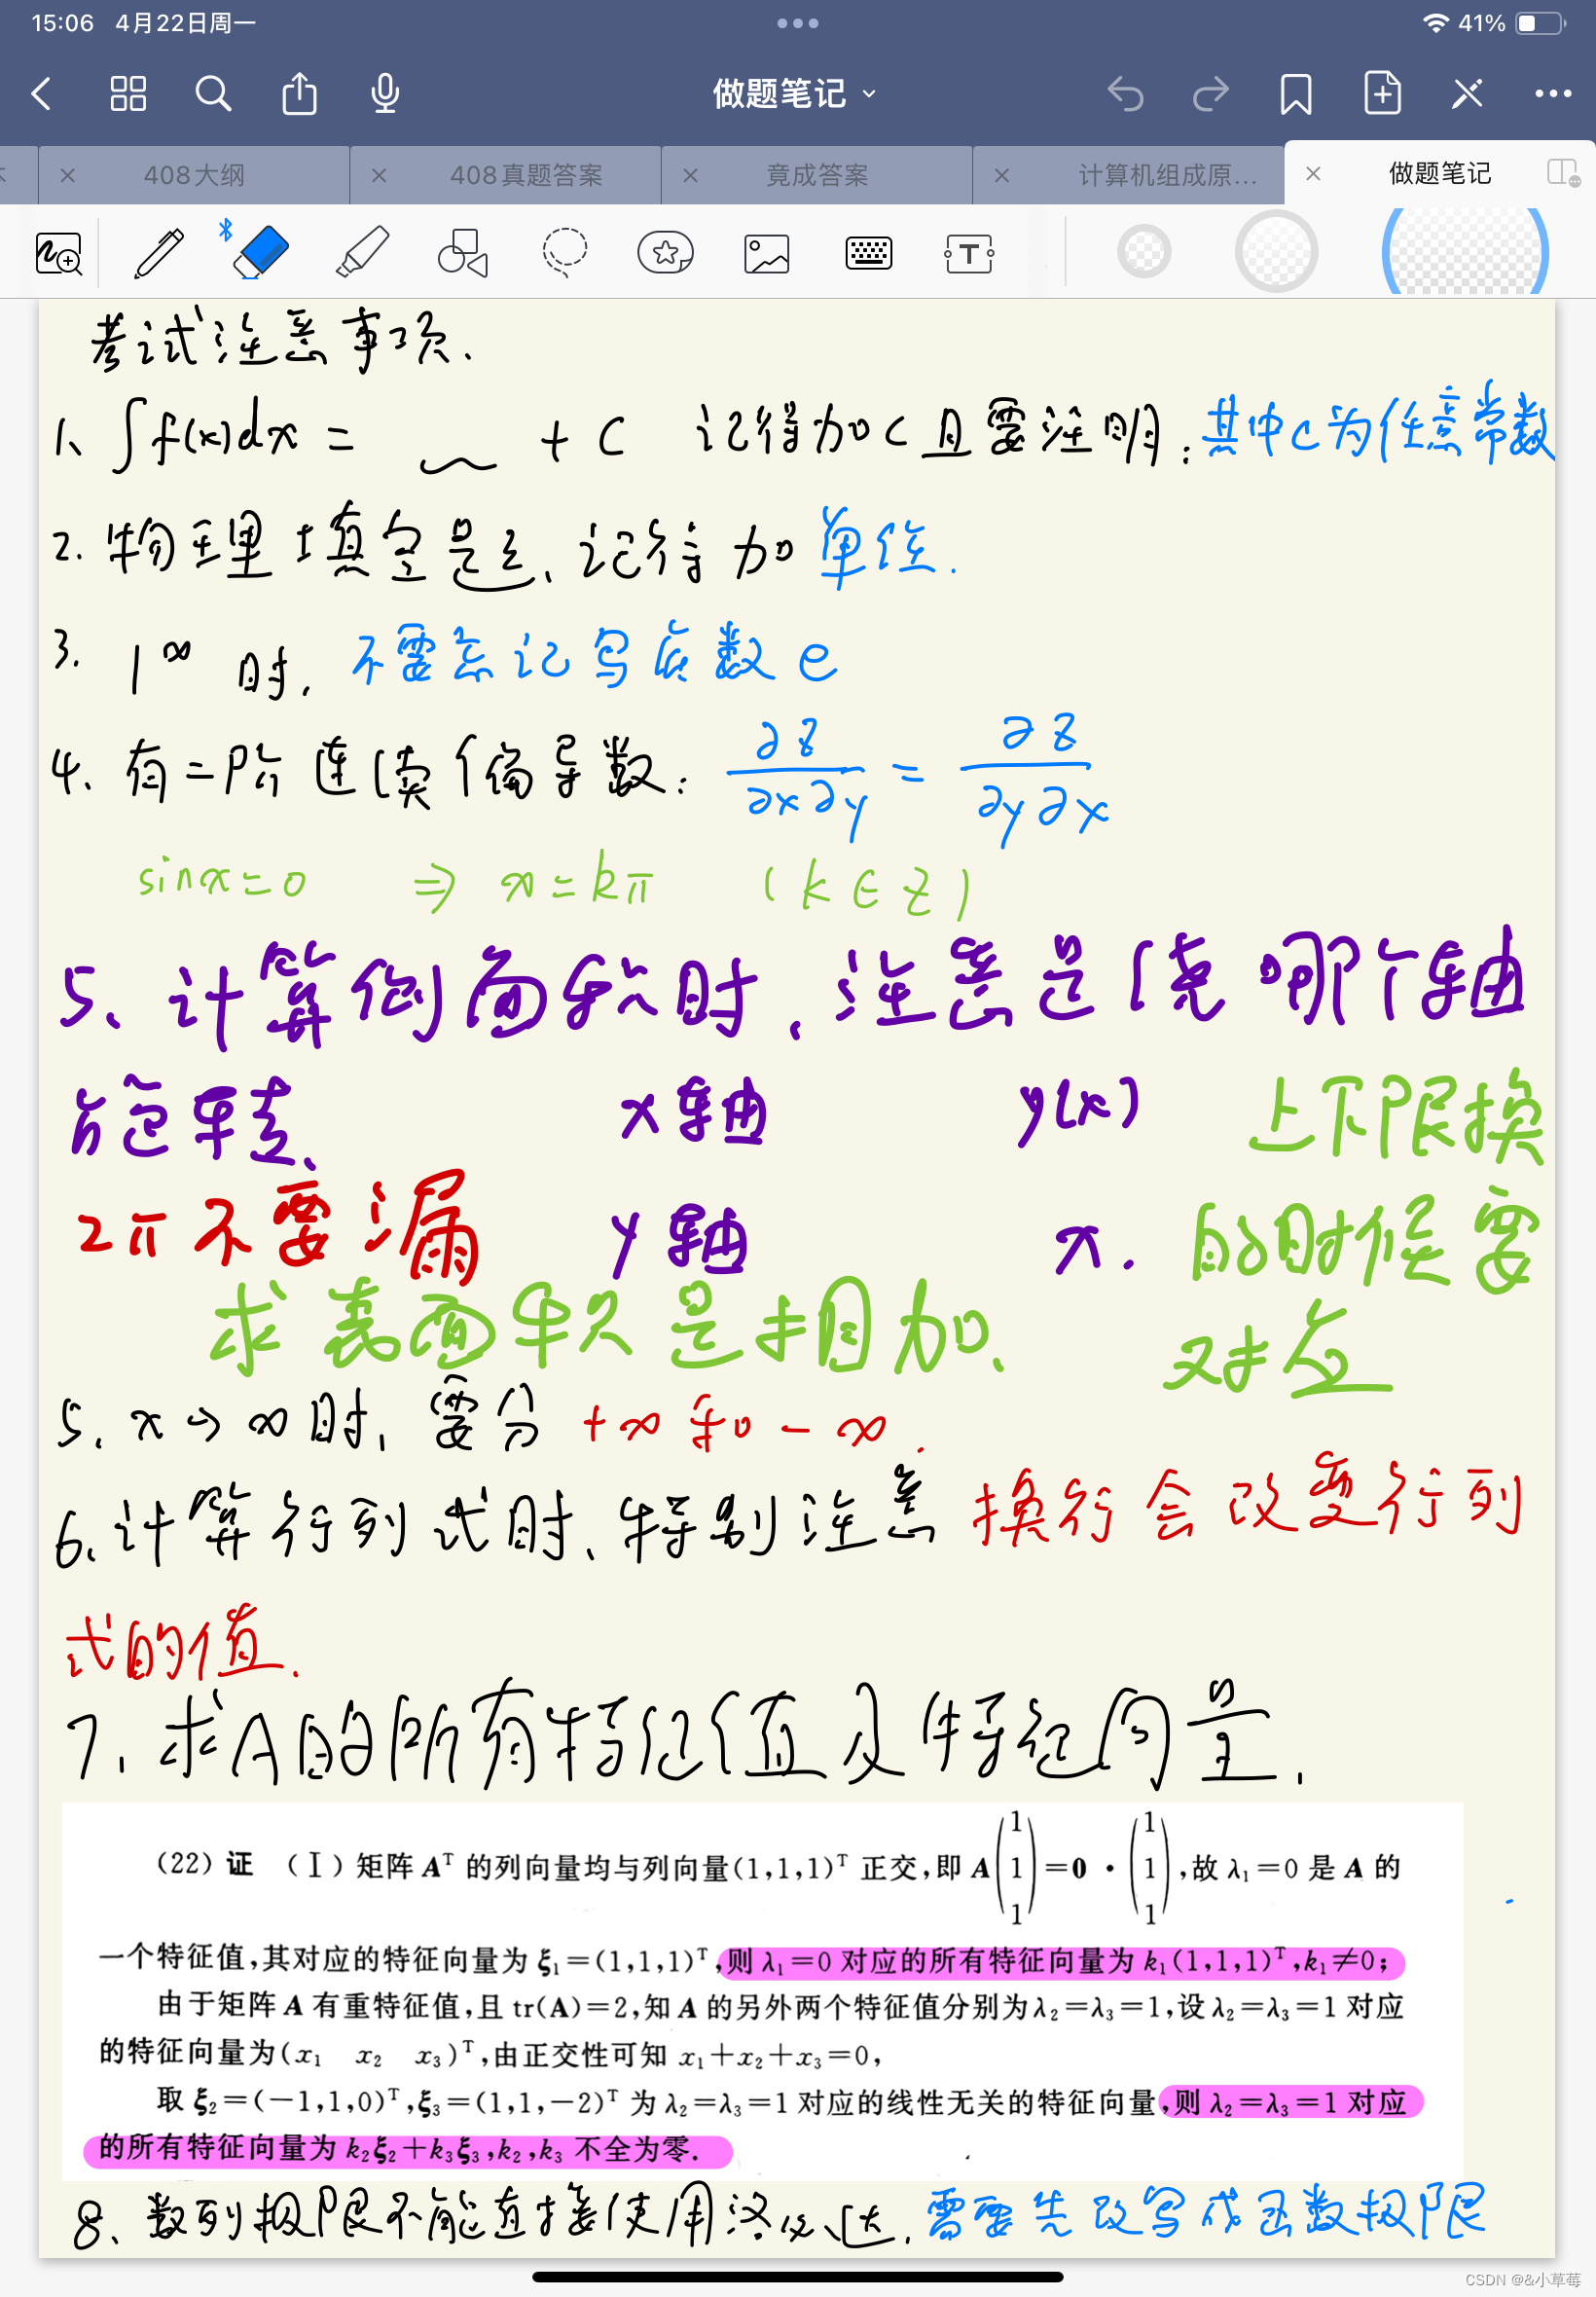 15:06 4月22日周一 41%
做题笔记
408大纲 408真题答案 竟成答案 计算机组成原... 做题笔记
考试注意事项.
1、∫f(x)dx = ﹏ + C 记得加C且要注明:其中C为任意常数
2.物理填空题、记得加单位.
3. 1^∞ 时,不要忘记写底数e
4、有二阶连续偏导数: ∂z/∂x∂y = ∂z/∂y∂x
sinx=0 ⇒ x=kπ (k∈Z)
5、计算侧面积时,注意是绕哪个轴
旋转、 x轴 y(x) 上下限换
2π不要漏 y轴 x. 的时候要
求表面积是相加、 对应
5. x→∞时,要分+∞和-∞.
6、计算行列式时、特别注意换行会改变行列
式的值.
7、求A的所有特征值及特征向量.
(22) 证 (Ⅰ)矩阵Aᵀ的列向量均与列向量(1,1,1)ᵀ正交,即A(1 1 1)=0·(1 1 1),故λ₁=0是A的
一个特征值,其对应的特征向量为ξ₁=(1,1,1)ᵀ,则λ₁=0对应的所有特征向量为k₁(1,1,1)ᵀ,k₁≠0;
由于矩阵A有重特征值,且tr(A)=2,知A的另外两个特征值分别为λ₂=λ₃=1,设λ₂=λ₃=1对应
的特征向量为(x₁ x₂ x₃)ᵀ,由正交性可知x₁+x₂+x₃=0,
取ξ₂=(-1,1,0)ᵀ,ξ₃=(1,1,-2)ᵀ为λ₂=λ₃=1对应的线性无关的特征向量,则λ₂=λ₃=1对应
的所有特征向量为k₂ξ₂+k₃ξ₃,k₂,k₃不全为零.
8、数列极限不能直接使用洛必达,需要先改写成函数极限
CSDN @&小草莓